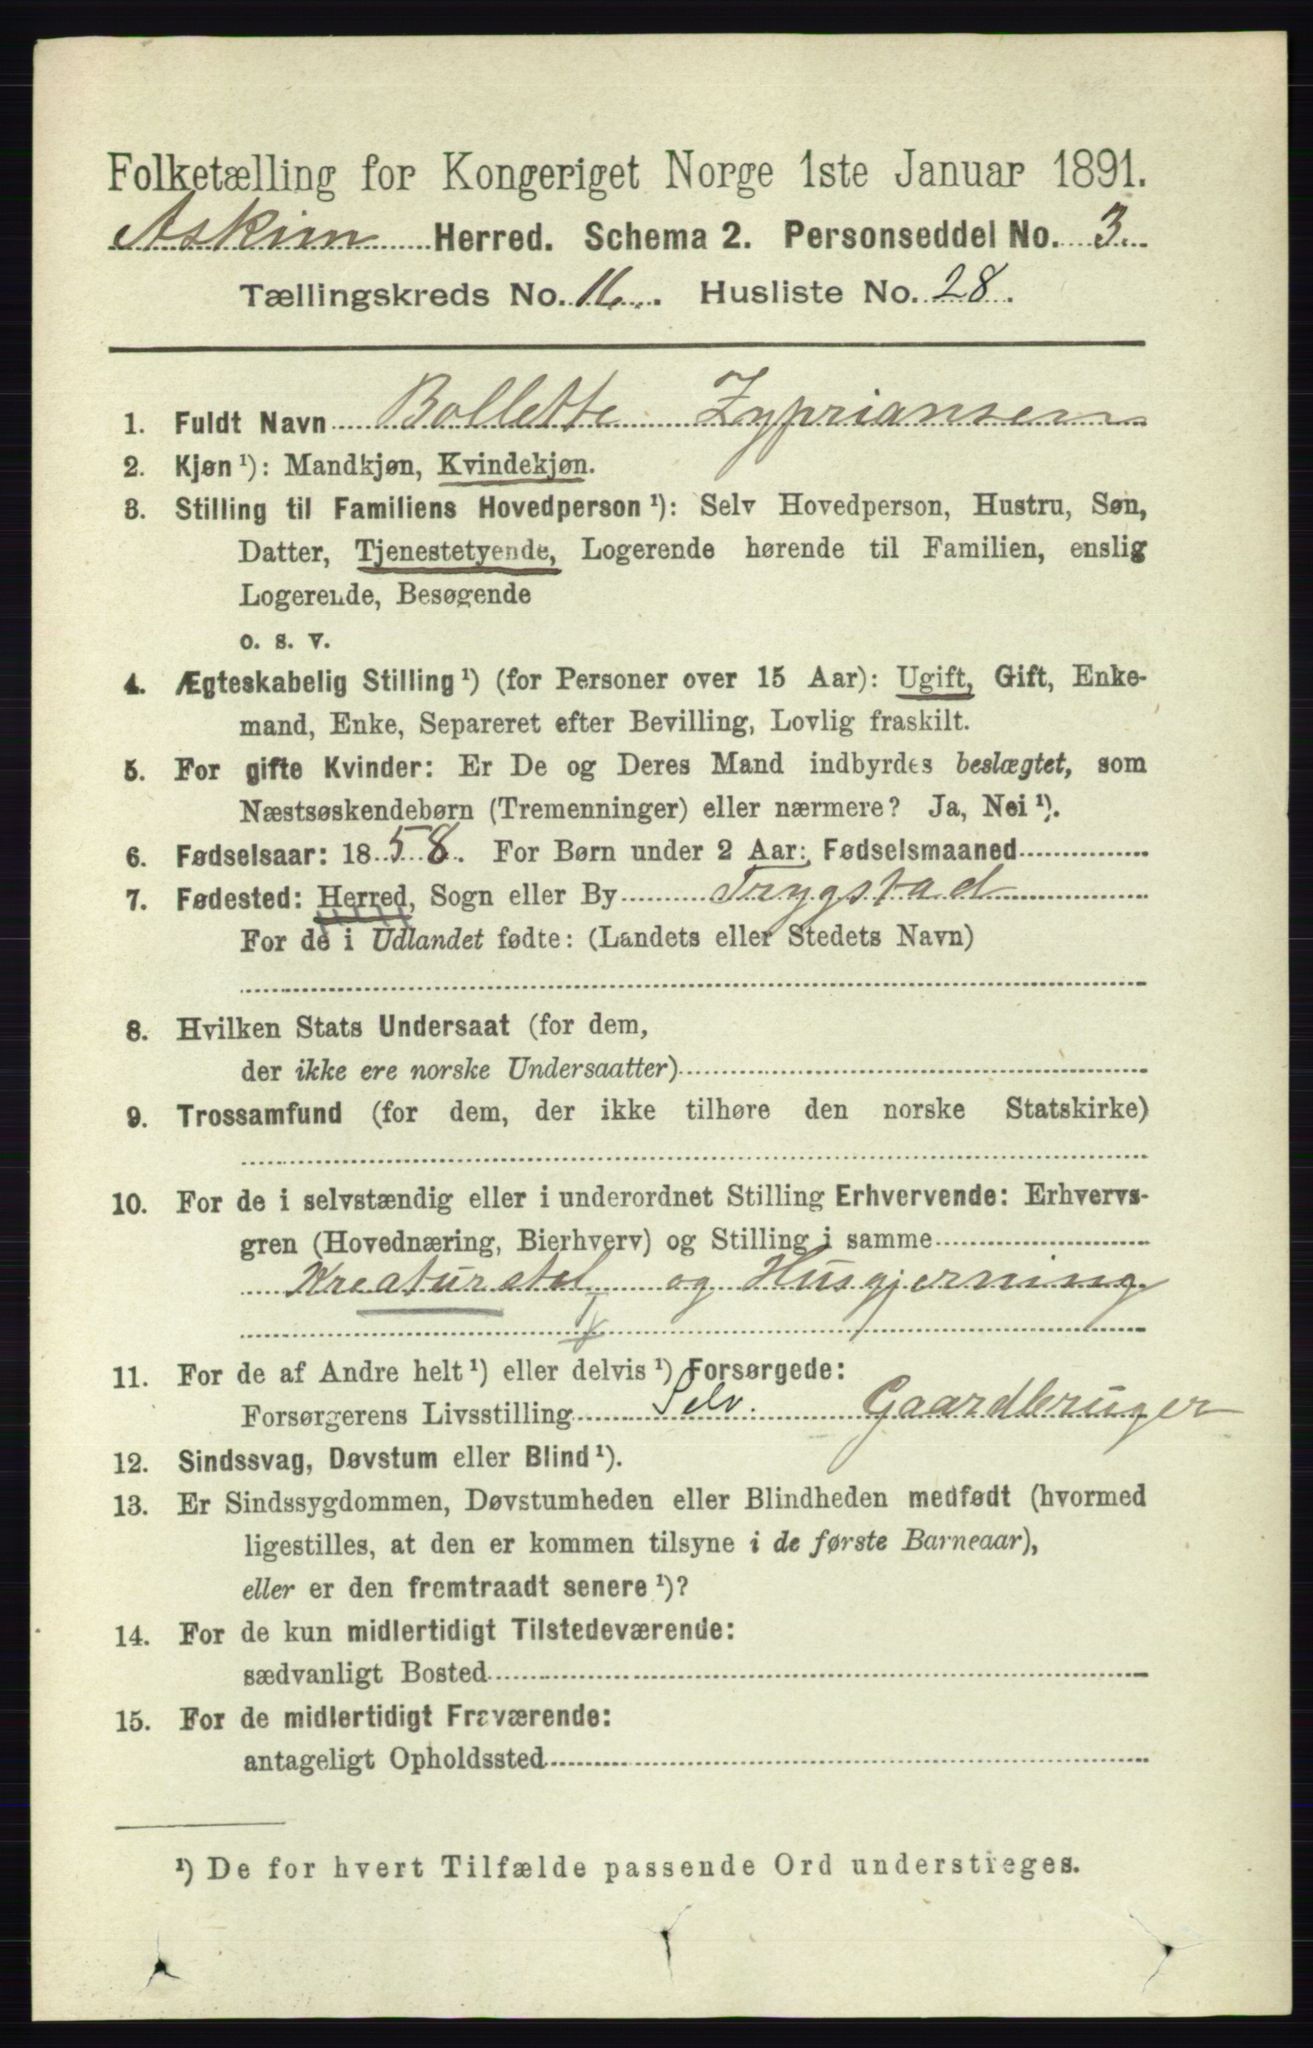 Folketælling for Kongeriget Norge 1ste Januar 1891.
Askim Herred. Schema 2. Personseddel No. 3.
Tællingskreds No. 11. Husliste No. 28.
1. Fuldt Navn Bollette Zypriansen
2. Kjøn ¹): Mandkjøn, Kvindekjøn.
3. Stilling til Familiens Hovedperson ¹): Selv Hovedperson, Hustru, Søn,
Datter, Tjenestetyende, Logerende hørende til Familien, enslig
Logerende, Besøgende
o. s. v.
4. Ægteskabelig Stilling ¹) (for Personer over 15 Aar): Ugift, Gift, Enke-
mand, Enke, Separeret efter Bevilling, Lovlig fraskilt.
5. For gifte Kvinder: Er De og Deres Mand indbyrdes beslægtet, som
Næstsøskendebørn (Tremenninger) eller nærmere? Ja, Nei ¹).
6. Fødselsaar: 1858. For Børn under 2 Aar: Fødselsmaaned
7. Fødested: Herred, Sogn eller By Trygstad
For de i Udlandet fødte: (Landets eller Stedets Navn)
8. Hvilken Stats Undersaat (for dem,
der ikke ere norske Undersaatter)
9. Trossamfund (for dem, der ikke tilhøre den norske Statskirke)
10. For de i selvstændig eller i underordnet Stilling Erhvervende: Erhvervs-
gren (Hovednæring, Bierhverv) og Stilling i samme
Kreaturstel og Husgjerning
11. For de af Andre helt ¹) eller delvis ¹) Forsørgede:
Forsørgerens Livsstilling Selv. Gaardbruger
12. Sindssvag, Døvstum eller Blind ¹).
13. Er Sindssygdommen, Døvstumheden eller Blindheden medfødt (hvormed
ligestilles, at den er kommen tilsyne i de første Barneaar),
eller er den fremtraadt senere ¹)?
14. For de kun midlertidigt Tilstedeværende:
sædvanligt Bosted
15. For de midlertidigt Fraværende:
antageligt Opholdssted
¹) De for hvert Tilfælde passende Ord understreges.